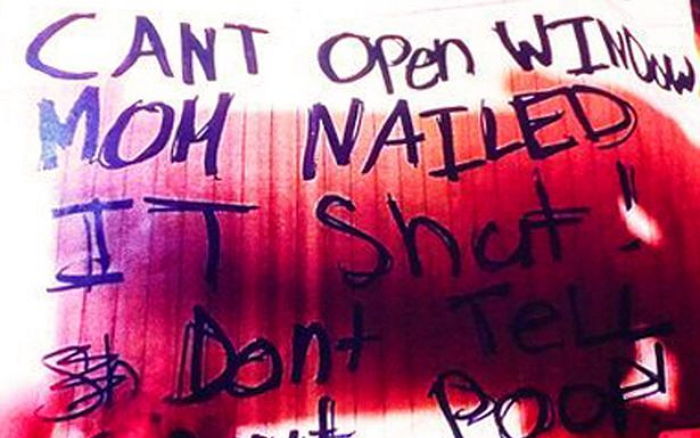 CANT Open WINDOW
MOM NAILED
IT Shut!
Sh Dont TeLL